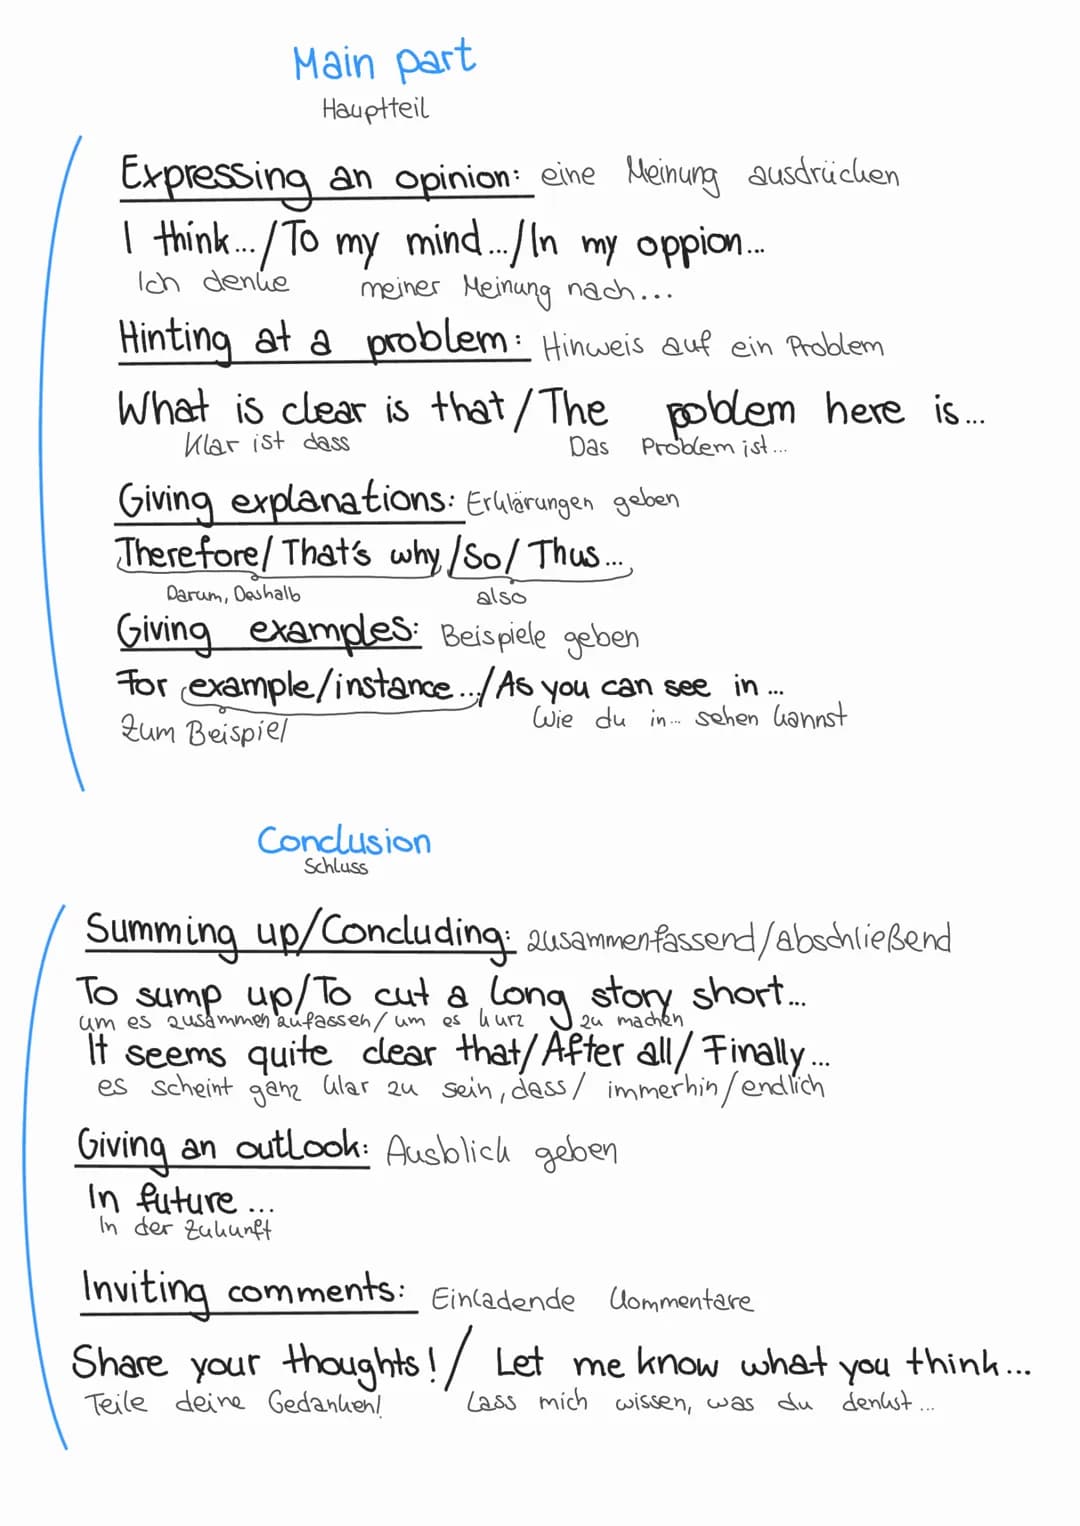 Main part
Hauptteil
Expressing an opinion: eine Meinung ausdrücken
I think.../To my mind.../In my oppion...
Ich denke meiner Meinung nach...
Hinting at a problem: Hinweis auf ein Problem
What is clear is that/The poblem here is...
Klar ist dass Das Problem ist...
Giving explanations: Erklärungen geben
Therefore/That's why/So/Thus...
Darum, Deshalb also
Giving examples: Beispiele geben
For example/instance.../As you can see in...
Zum Beispiel Wie du in... sehen kannst
Conclusion
Schluss
Summing up/Concluding: zusammenfassend/abschließend
To sump up/To cut a long story short...
um es zusammen zufassen/um es kurz zu machen
It seems quite clear that/After all/Finally...
es scheint ganz klar zu sein, dass/immerhin/endlich
Giving an outlook: Ausblick geben
In future...
In der Zukunft
Inviting comments: Einladende Kommentare
Share your thoughts!/ Let me know what you think...
Teile deine Gedanken! Lass mich wissen, was du denkst...